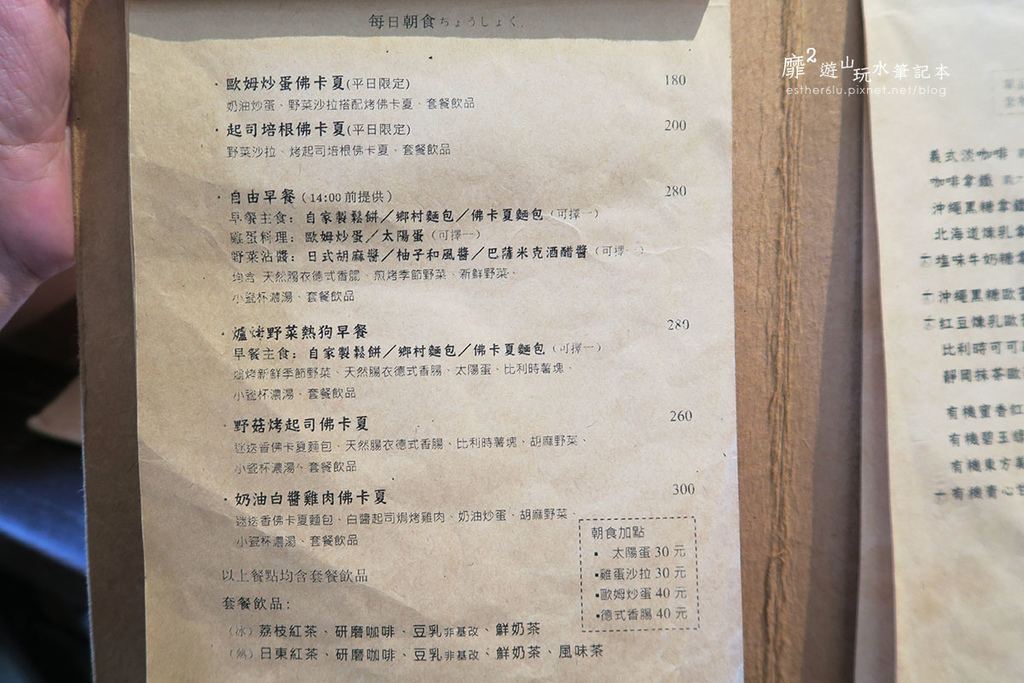 每日朝食ちょうしょく
·歐姆炒蛋佛卡夏(平日限定) 180
奶油炒蛋、野菜沙拉搭配烤佛卡夏、套餐飲品
·起司培根佛卡夏(平日限定) 200
野菜沙拉、烤起司培根佛卡夏、套餐飲品
·自由早餐(14:00前提供) 280
早餐主食：自家製鬆餅／鄉村麵包／佛卡夏麵包(可擇一)
雞蛋料理：歐姆炒蛋／太陽蛋(可擇一)
野菜沾醬：日式胡麻醬／柚子和風醬／巴薩米克酒醋醬(可擇一)
均含 天然腸衣德式香腸、煎烤季節野菜、新鮮野菜、
小瓷杯濃湯、套餐飲品
·爐烤野菜熱狗早餐 280
早餐主食：自家製鬆餅／鄉村麵包／佛卡夏麵包(可擇一)
焗烤新鮮季節野菜、天然腸衣德式香腸、太陽蛋、比利時薯塊、
小瓷杯濃湯、套餐飲品
·野菇烤起司佛卡夏 260
迷迭香佛卡夏麵包、天然腸衣德式香腸、比利時薯塊、胡麻野菜、
小瓷杯濃湯、套餐飲品
·奶油白醬雞肉佛卡夏 300
迷迭香佛卡夏麵包、白醬起司焗烤雞肉、奶油炒蛋、胡麻野菜、
小瓷杯濃湯、套餐飲品
朝食加點
▪ 太陽蛋 30 元
▪雞蛋沙拉 30 元
▪歐姆炒蛋 40 元
▪德式香腸 40 元
以上餐點均含套餐飲品
套餐飲品：
(冰) 荔枝紅茶、研磨咖啡、豆乳非基改、鮮奶茶
(熱) 日東紅茶、研磨咖啡、豆乳非基改、鮮奶茶、風味茶
靡2遊山玩水筆記本
esther6lu.pixnet.net/blog
義式淡咖啡
咖啡拿鐵
沖繩黑糖拿鐵
北海道煉乳拿
塩味牛奶糖拿
沖繩黑糖歐
紅豆煉乳歐
比利時可可
靜岡抹茶歐
有機蜜香紅
有機碧玉
有機東方
有機青心